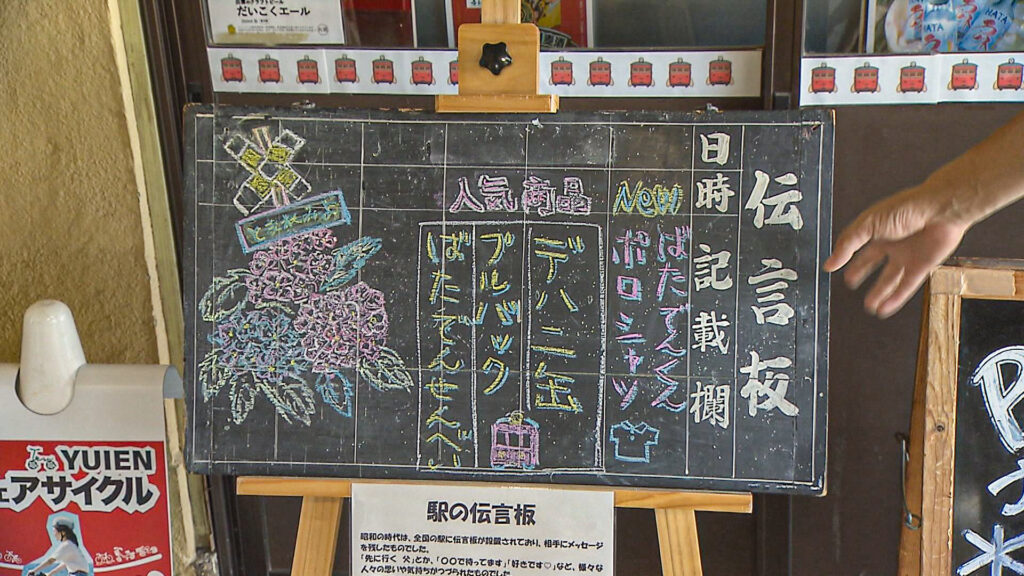 だいこくエール
伝言板
日時 記載欄
New
ばたでんくん
ポロシャツ
人気商品
デハニ缶
プルバック
ばたでんせんべい
とまれみよ
駅の伝言板
昭和の時代は、全国の駅に伝言板が設置されており、相手にメッセージ
を残したものでした。
「先に行く 父」とか、「〇〇で待ってます」「好きです♡」など、様々な
人々の思いや気持ちがつづられたものでした
YUIEN
ェアサイクル